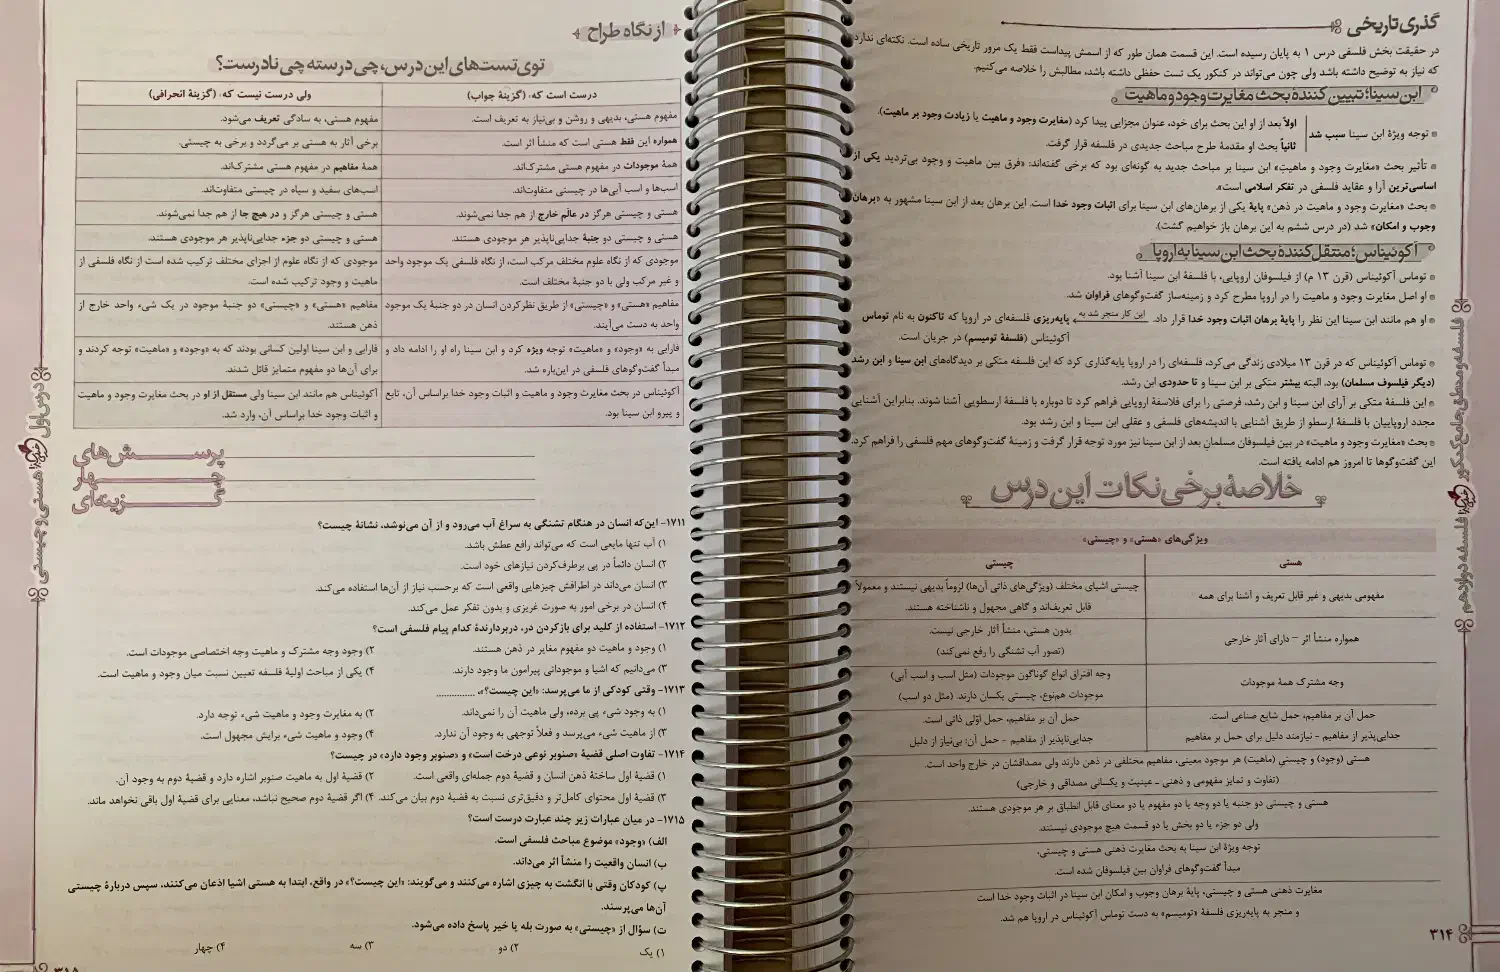 گذری تاریخی
در حقیقت بخش فلسفی درس ۱ به پایان رسیده است. این قسمت همان طور که از اسمش پیداست فقط یک مرور تاریخی ساده است. نکته‌ای ندارد
که نیاز به توضیح داشته باشد ولی چون می‌تواند در کنکور یک تست حفظی داشته باشد، مطالبش را خلاصه می‌کنیم.
ابن سینا؛ تبیین کنندهٔ بحث مغایرت وجود و ماهیت
توجه ویژهٔ ابن سینا سبب شد
اولاً بعد از او این بحث برای خود، عنوان مجزایی پیدا کرد (مغایرت وجود و ماهیت یا زیادت وجود بر ماهیت).
ثانیاً بحث او مقدمهٔ طرح مباحث جدیدی در فلسفه قرار گرفت.
تأثیر بحث «مغایرت وجود و ماهیت» ابن سینا بر مباحث جدید به گونه‌ای بود که برخی گفته‌اند: «فرق بین ماهیت و وجود بی‌تردید یکی از
اساسی‌ترین آرا و عقاید فلسفی در تفکر اسلامی است».
بحث «مغایرت وجود و ماهیت در ذهن» پایهٔ یکی از برهان‌های ابن سینا برای اثبات وجود خدا است. این برهان بعد از ابن سینا مشهور به «برهان
وجوب و امکان» شد (در درس ششم به این برهان باز خواهیم گشت).
آکوئیناس؛ منتقل کنندهٔ بحث ابن سینا به اروپا
توماس آکوئیناس (قرن ۱۳ م) از فیلسوفان اروپایی، با فلسفهٔ ابن سینا آشنا بود.
او اصل مغایرت وجود و ماهیت را در اروپا مطرح کرد و زمینه‌ساز گفت‌وگوهای فراوان شد.
او هم مانند ابن سینا این نظر را پایهٔ برهان اثبات وجود خدا قرار داد. این کار منجر شد به پایه‌ریزی فلسفه‌ای در اروپا که تاکنون به نام توماس
آکوئیناس (فلسفهٔ تومیسم) در جریان است.
توماس آکوئیناس که در قرن ۱۳ میلادی زندگی می‌کرد، فلسفه‌ای را در اروپا پایه‌گذاری کرد که این فلسفه متکی بر دیدگاه‌های ابن سینا و ابن رشد
(دیگر فیلسوف مسلمان) بود، البته بیشتر متکی بر ابن سینا و تا حدودی ابن رشد.
این فلسفهٔ متکی بر آرای ابن سینا و ابن رشد، فرصتی را برای فلاسفهٔ اروپایی فراهم کرد تا دوباره با فلسفهٔ ارسطویی آشنا شوند. بنابراین آشنایی
مجدد اروپاییان با فلسفهٔ ارسطو از طریق آشنایی با اندیشه‌های فلسفی و عقلی ابن سینا و ابن رشد بود.
بحث «مغایرت وجود و ماهیت» در بین فیلسوفان مسلمان بعد از ابن سینا نیز مورد توجه قرار گرفت و زمینهٔ گفت‌وگوهای مهم فلسفی را فراهم کرد.
این گفت‌وگوها تا امروز هم ادامه یافته است.
خلاصهٔ برخی نکات این درس
ویژگی‌های «هستی» و «چیستی»
هستی
چیستی
مفهومی بدیهی و غیر قابل تعریف و آشنا برای همه
چیستی اشیای مختلف (ویژگی‌های ذاتی آن‌ها) لزوماً بدیهی نیستند و معمولاً
قابل تعریف‌اند و گاهی مجهول و ناشناخته هستند.
همواره منشأ اثر – دارای آثار خارجی
بدون هستی، منشأ آثار خارجی نیست.
(تصور آب تشنگی را رفع نمی‌کند)
وجه مشترک همهٔ موجودات
وجه افتراق انواع گوناگون موجودات (مثل اسب و اسب آبی)
موجودات هم‌نوع، چیستی یکسان دارند. (مثل دو اسب)
حمل آن بر مفاهیم، حمل شایع صناعی است.
جدایی‌پذیر از مفاهیم – نیازمند دلیل برای حمل بر مفاهیم
حمل آن بر مفاهیم، حمل اوّلی ذاتی است.
جدایی‌ناپذیر از مفاهیم – حمل آن: بی‌نیاز از دلیل
هستی (وجود) و چیستی (ماهیت) هر موجود معینی، مفاهیم مختلفی در ذهن دارند ولی مصداقشان در خارج واحد است.
(تفاوت و تمایز مفهومی و ذهنی – عینیت و یکسانی مصداقی و خارجی)
هستی و چیستی دو جنبه یا دو وجه یا دو مفهوم یا دو معنای قابل انطباق بر هر موجودی هستند.
ولی دو جزء یا دو بخش یا دو قسمت هیچ موجودی نیستند.
توجه ویژهٔ ابن سینا به بحث مغایرت ذهنی هستی و چیستی،
مبدأ گفت‌وگوهای فراوان بین فیلسوفان شده است.
مغایرت ذهنی هستی و چیستی، پایهٔ برهان وجوب و امکان ابن سینا در اثبات وجود خدا است
و منجر به پایه‌ریزی فلسفهٔ «تومیسم» به دست توماس آکوئیناس در اروپا هم شد.
۳۱۴
فلسفه و منطق جامع کنکور
فلسفه دوازدهم
از نگاه طراح
توی تست‌های این درس، چی درسته چی نادرست؟
درست است که: (گزینهٔ جواب)
ولی درست نیست که: (گزینهٔ انحرافی)
مفهوم هستی، بدیهی و روشن و بی‌نیاز به تعریف است.
مفهوم هستی، به سادگی تعریف می‌شود.
همواره این فقط هستی است که منشأ اثر است.
برخی آثار به هستی بر می‌گردد و برخی به چیستی.
همهٔ موجودات در مفهوم هستی مشترک‌اند.
همهٔ مفاهیم در مفهوم هستی مشترک‌اند.
اسب‌ها و اسب آبی‌ها در چیستی متفاوت‌اند.
اسب‌های سفید و سیاه در چیستی متفاوت‌اند.
هستی و چیستی هرگز در عالَم خارج از هم جدا نمی‌شوند.
هستی و چیستی هرگز و در هیچ جا از هم جدا نمی‌شوند.
هستی و چیستی دو جنبهٔ جدایی‌ناپذیر هر موجودی هستند.
هستی و چیستی دو جزء جدایی‌ناپذیر هر موجودی هستند.
موجودی که از نگاه علوم مختلف مرکب است، از نگاه فلسفی یک موجود واحد
و غیر مرکب ولی با دو جنبهٔ مختلف است.
موجودی که از نگاه علوم از اجزای مختلف ترکیب شده است از نگاه فلسفی از
ماهیت و وجود ترکیب شده است.
مفاهیم «هستی» و «چیستی» از طریق نظر کردن انسان در دو جنبهٔ یک موجود
واحد به دست می‌آیند.
مفاهیم «هستی» و «چیستی» دو جنبهٔ موجود در یک شیء واحد خارج از
ذهن هستند.
فارابی به «وجود» و «ماهیت» توجه ویژه کرد و ابن سینا راه او را ادامه داد و
مبدأ گفت‌وگوهای فلسفی در این‌باره شد.
فارابی و ابن سینا اولین کسانی بودند که به «وجود» و «ماهیت» توجه کردند و
برای آن‌ها دو مفهوم متمایز قائل شدند.
آکوئیناس در بحث مغایرت وجود و ماهیت و اثبات وجود خدا براساس آن، تابع
و پیرو ابن سینا بود.
آکوئیناس هم مانند ابن سینا ولی مستقل از او در بحث مغایرت وجود و ماهیت
و اثبات وجود خدا براساس آن، وارد شد.
پرسش‌های
چهار
گزینه‌ای
۱۷۱۱- این‌که انسان در هنگام تشنگی به سراغ آب می‌رود و از آن می‌نوشد، نشانهٔ چیست؟
۱) آب تنها مایعی است که می‌تواند رافع عطش باشد.
۲) انسان دائماً در پی برطرف‌کردن نیازهای خود است.
۳) انسان می‌داند در اطرافش چیزهایی واقعی است که برحسب نیاز از آن‌ها استفاده می‌کند.
۴) انسان در برخی امور به صورت غریزی و بدون تفکر عمل می‌کند.
۱۷۱۲- استفاده از کلید برای بازکردن در، دربردارندهٔ کدام پیام فلسفی است؟
۱) وجود و ماهیت دو مفهوم مغایر در ذهن هستند.
۲) وجود وجه مشترک و ماهیت وجه اختصاصی موجودات است.
۳) می‌دانیم که اشیا و موجوداتی پیرامون ما وجود دارند.
۴) یکی از مباحث اولیهٔ فلسفه تعیین نسبت میان وجود و ماهیت است.
۱۷۱۳- وقتی کودکی از ما می‌پرسد: «این چیست؟»، ...............
۱) به وجود شیء پی برده، ولی ماهیت آن را نمی‌داند.
۲) به مغایرت وجود و ماهیت شیء توجه دارد.
۳) از ماهیت شیء می‌پرسد و فعلاً توجهی به وجود آن ندارد.
۴) وجود و ماهیت شیء برایش مجهول است.
۱۷۱۴- تفاوت اصلی قضیهٔ «صنوبر نوعی درخت است» و «صنوبر وجود دارد» در چیست؟
۱) قضیهٔ اول ساختهٔ ذهن انسان و قضیهٔ دوم جمله‌ای واقعی است.
۲) قضیهٔ اول به ماهیت صنوبر اشاره دارد و قضیهٔ دوم به وجود آن.
۳) قضیهٔ اول محتوای کامل‌تر و دقیق‌تری نسبت به قضیهٔ دوم بیان می‌کند.
۴) اگر قضیهٔ دوم صحیح نباشد، معنایی برای قضیهٔ اول باقی نخواهد ماند.
۱۷۱۵- در میان عبارات زیر چند عبارت درست است؟
الف) «وجود» موضوع مباحث فلسفی است.
ب) انسان واقعیت را منشأ اثر می‌داند.
پ) کودکان وقتی با انگشت به چیزی اشاره می‌کنند و می‌گویند: «این چیست؟» در واقع، ابتدا به هستی اشیا اذعان می‌کنند، سپس دربارهٔ چیستی
آن‌ها می‌پرسند.
ت) سؤال از «چیستی» به صورت بله یا خیر پاسخ داده می‌شود.
۱) یک
۲) دو
۳) سه
۴) چهار
درس اول
هستی و چیستی
۳۱۵